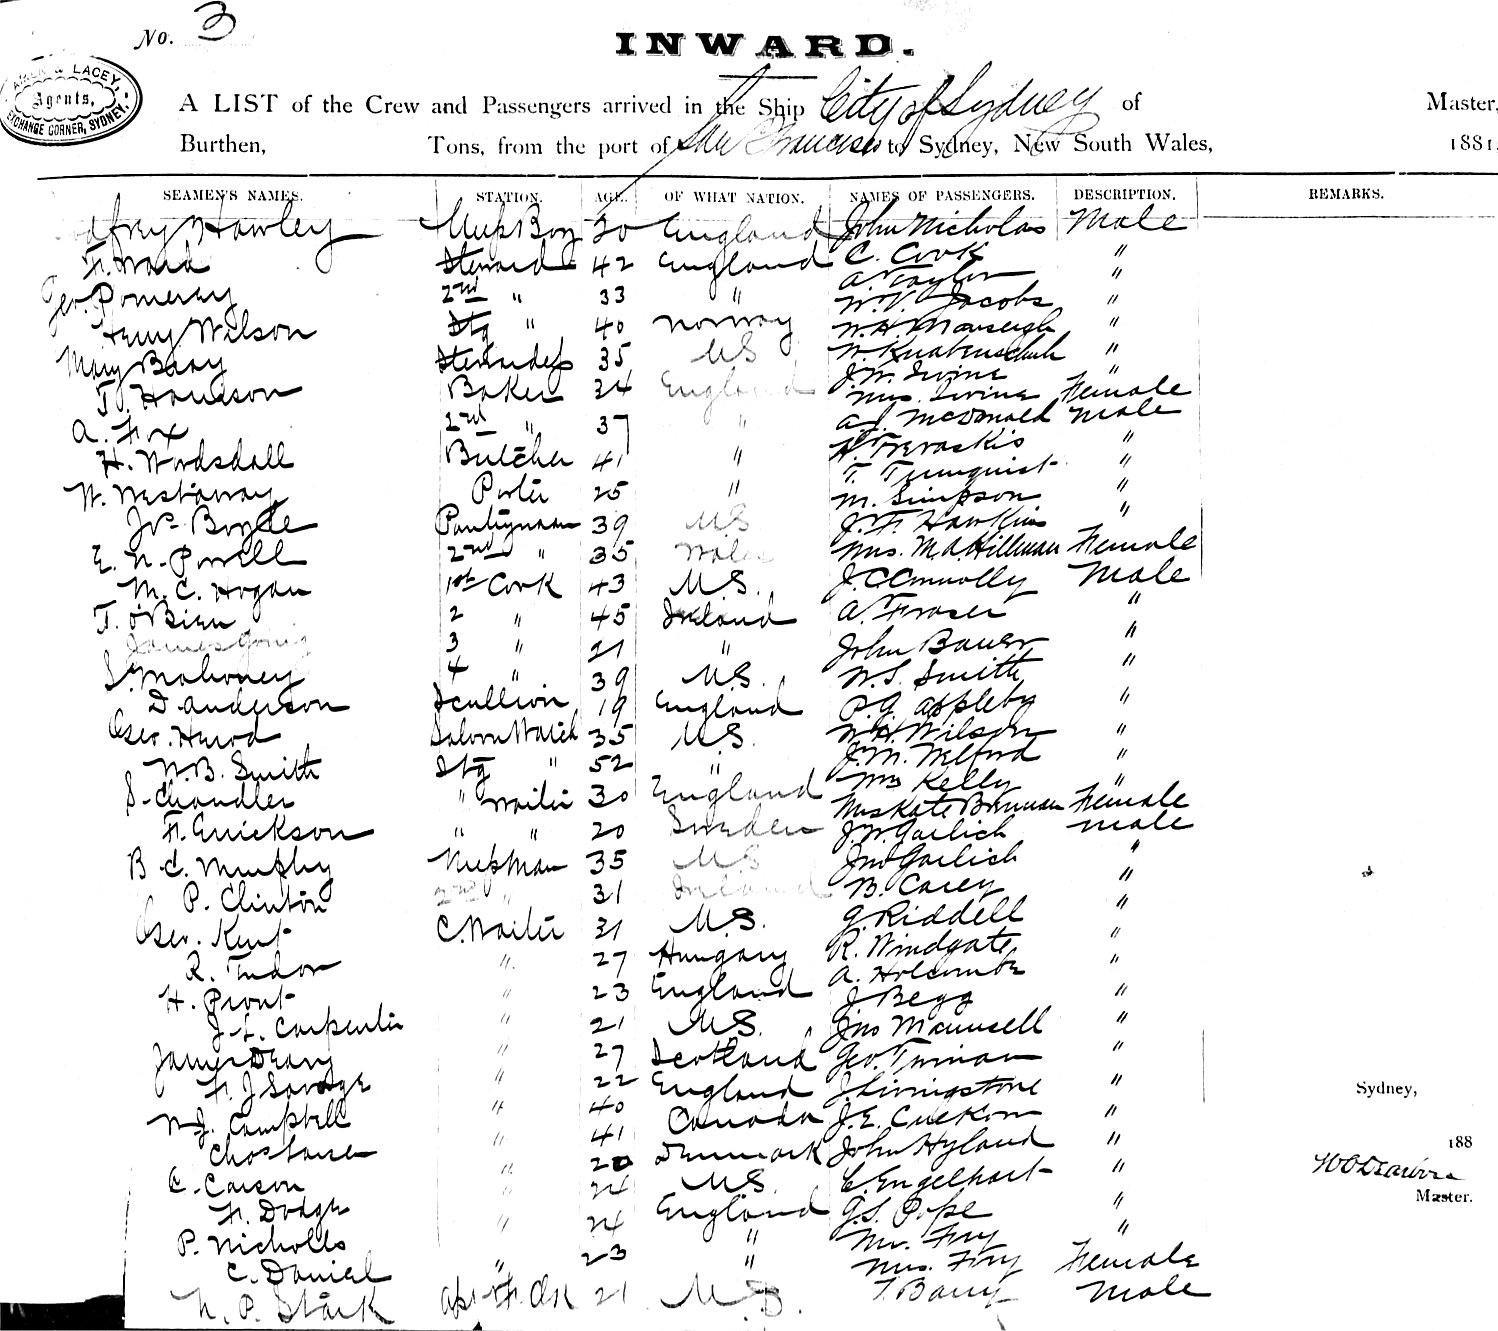 No. 3
INWARD.
LACEY,
Agents,
EXCHANGE CORNER, SYDNEY.
A LIST of the Crew and Passengers arrived in the Ship City of Sydney of Master,
Burthen, Tons, from the port of San Francisco to Sydney, New South Wales, 1881.
SEAMEN'S NAMES. STATION. AGE. OF WHAT NATION. NAMES OF PASSENGERS. DESCRIPTION. REMARKS.
Hawley Mess Boy 30 England John Nicholas Male
F. Ward Steward 42 England C. Cook "
Geo. Pomeray 2nd " 33 " A. Taylor "
Henry Wilson Stg " 40 Norway W. V. Jacobs "
Mary Stewardess 35 U.S. "
Baker 34 England J. W. Irvine "
Mrs. Irvine Female
A. Fox 2nd " 37 " A. J. McDonald Male
H. Woodsdall Butcher 41 " "
W. Westaway Porter 25 " T. Turnquist "
Jno. Boyle Pantryman 39 U.S. M. Simpson "
J. F. Hawkins "
E. N. Powell 2nd " 35 Wales Mrs. M. A. Hillman Female
M. C. Hogan 1st Cook 43 U.S. J. C. Connolly Male
T. O'Brien 2 " 45 Ireland A. Fraser "
James 3 " 21 " John Bauer "
S. Mahoney 4 " 39 U.S. W. S. Smith "
D. Anderson Scullion 19 England P. G. Appleby "
Geo. Saloon Watch 35 U.S. W. H. Wilson "
W. B. Smith Stg " 52 " J. M. Welford "
Kelly "
S. Chandler " Waiter 30 England Mrs Kate Brennan Female
F. Erickson " " 20 Sweden J. W. Garlich Male
B. C. Murphy Messman 35 U.S. Jno Garlich "
P. Clinton 2nd " 31 Ireland B. Carey "
Geo. Kent C. Waiter 31 U.S. G. Riddell "
R. Tudor " 27 Hungary R. Windgate "
H. Prout " 23 England A. Holcombe "
J. L. Carpenter " 21 U.S. J Begg "
James Deary " 27 Scotland Jno Maunsell "
F. J. Savage " 22 England Geo. Truman "
W. J. Campbell " 40 Canada J. Livingstone "
Chas 41 Denmark J. E. "
C. Carson " 20 U.S. John Hyland "
F. Dodge " 24 England C. Engelhart "
P. Nicholls " 24 " G. S. Pope "
C. Daniel " 23 " Mr. Fry "
Mrs. Fry Female
W. P. Stark 21 U.S. T Barry Male
Sydney,
188
Master.